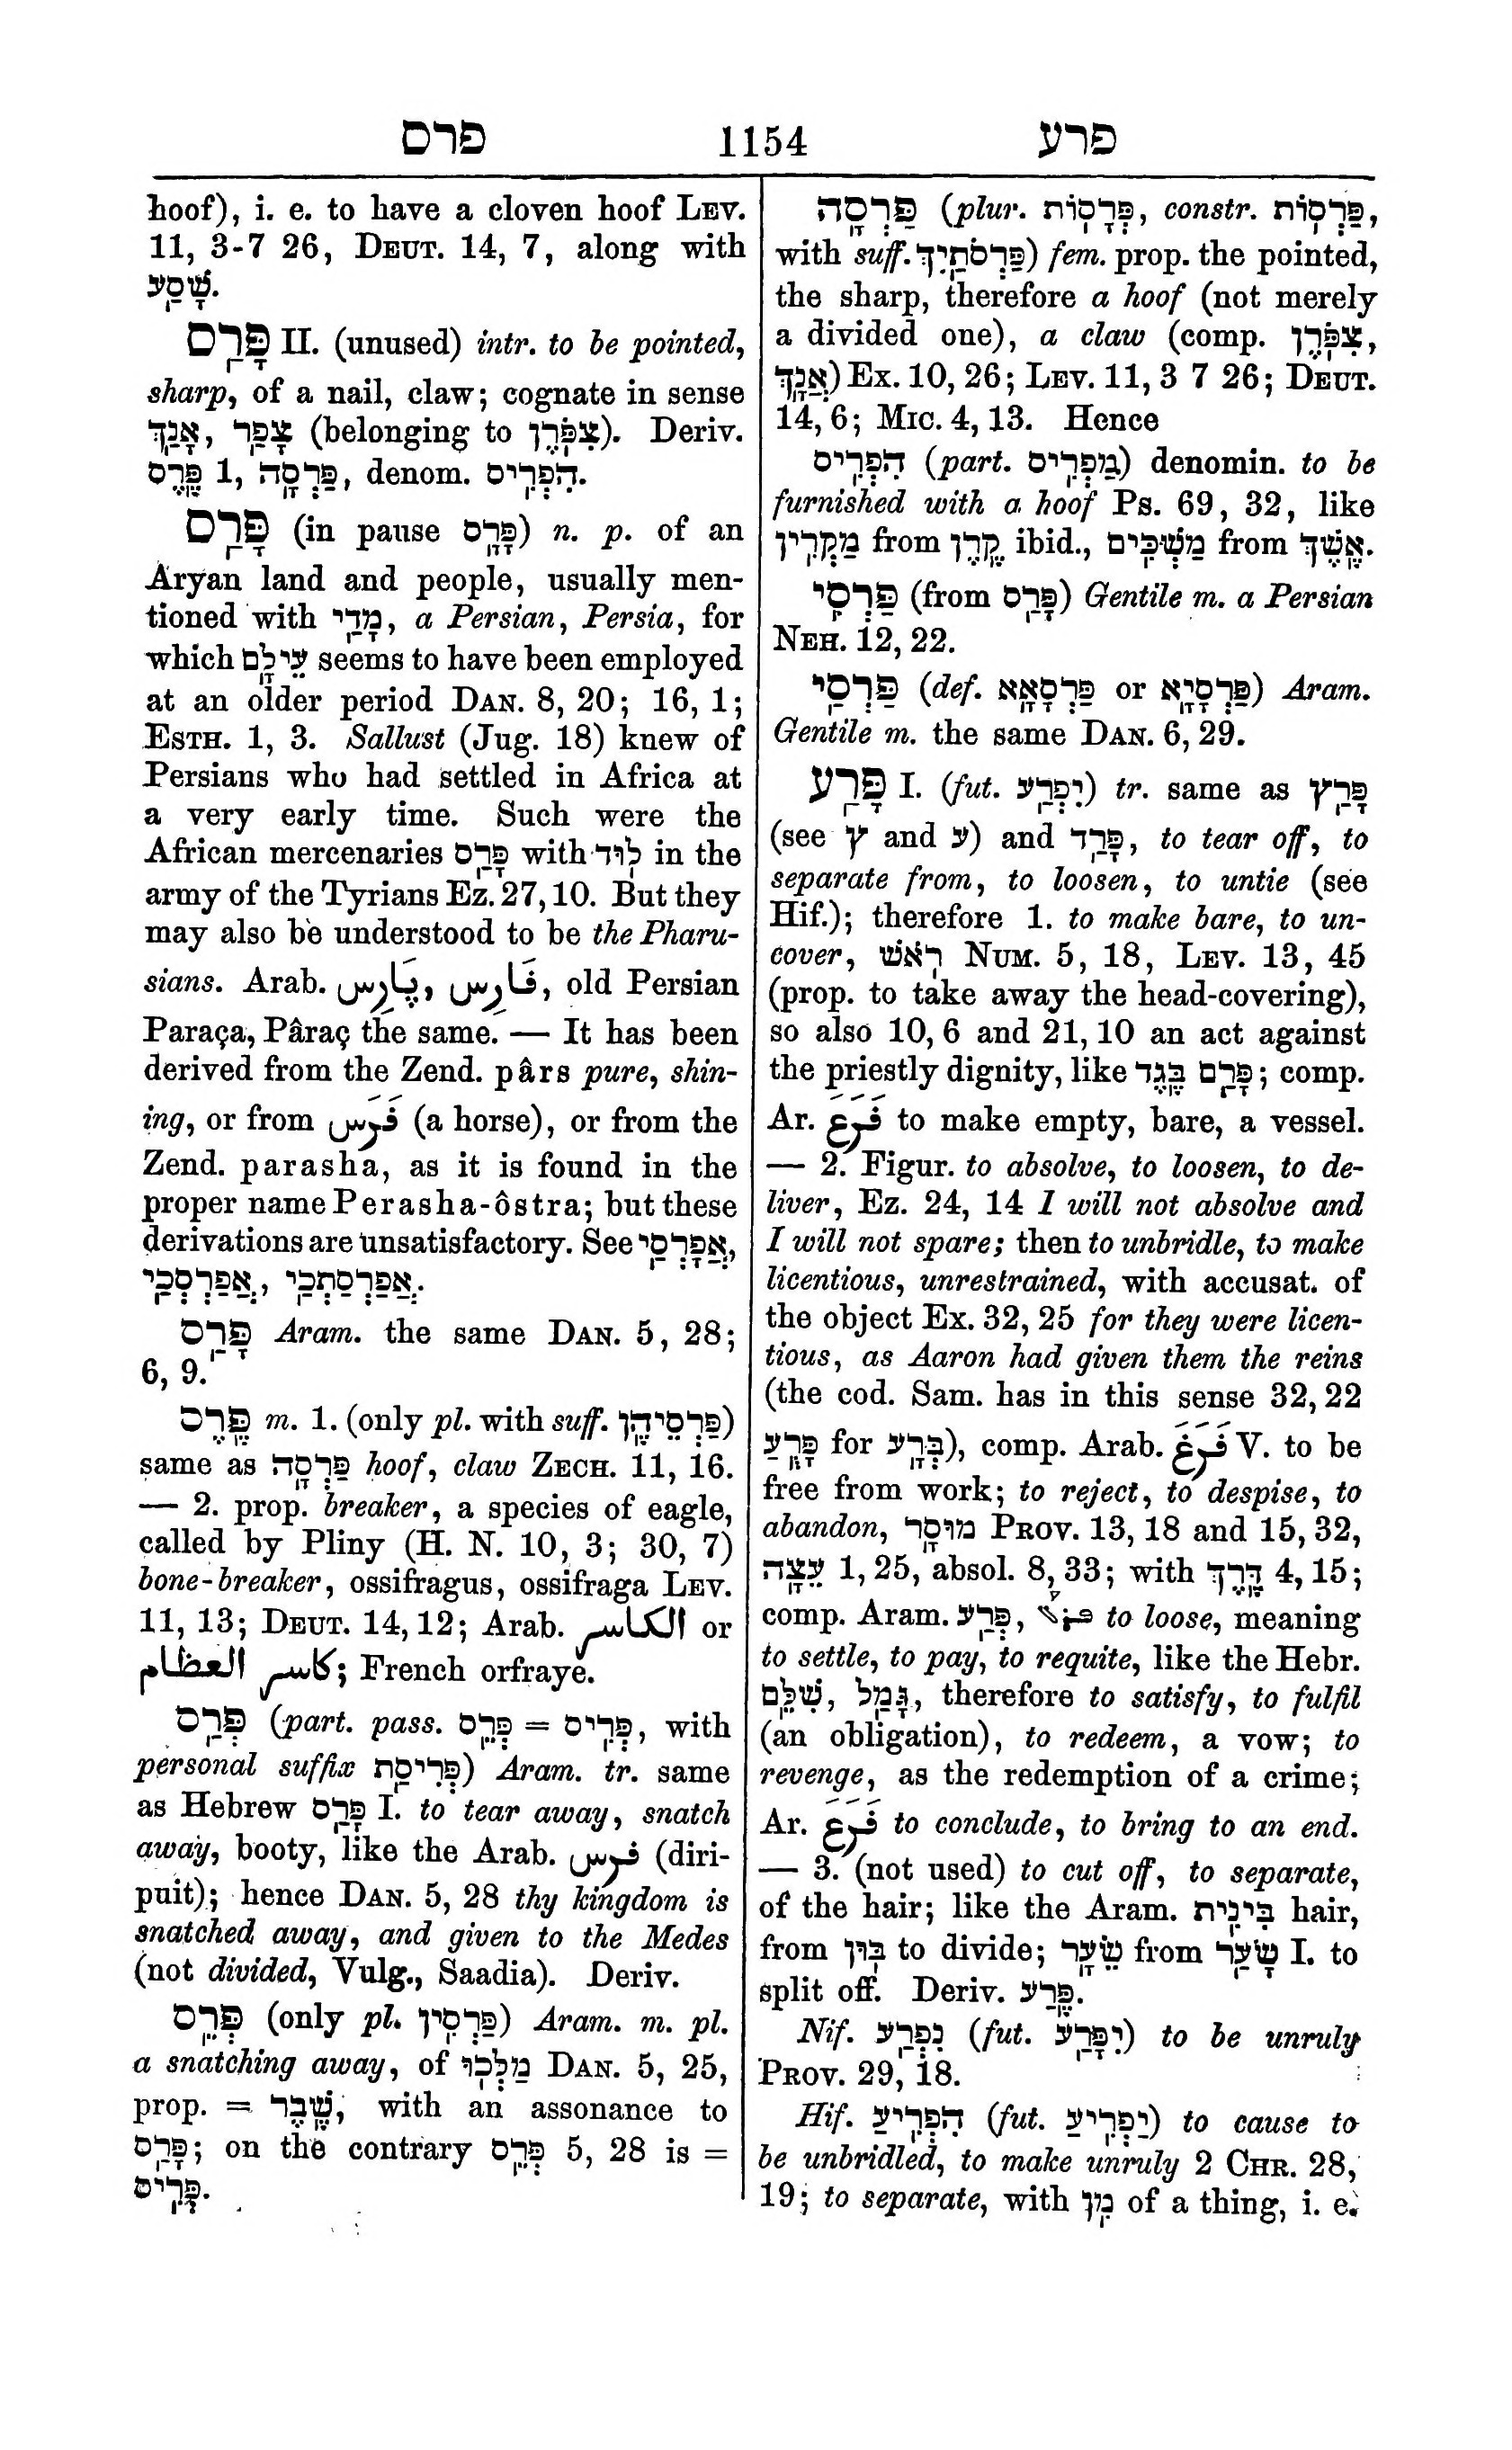 פרס 1154 פרע
hoof), i. e. to have a cloven hoof LEV.
11, 3-7 26, DEUT. 14, 7, along with
שָׁסַע.
פָּרַס II. (unused) intr. to be pointed,
sharp, of a nail, claw; cognate in sense
צָפַר, אָנַךְ (belonging to צִפֹּרֶן). Deriv.
פֶּרֶס 1, פַּרְסָה, denom. הִפְרִיס.
פָּרַס (in pause פָּרָס) n. p. of an
Aryan land and people, usually men-
tioned with מָדַי, a Persian, Persia, for
which עֵילָם seems to have been employed
at an older period DAN. 8, 20; 16, 1;
ESTH. 1, 3. Sallust (Jug. 18) knew of
Persians who had settled in Africa at
a very early time. Such were the
African mercenaries פָּרַס with לוּד in the
army of the Tyrians Ez. 27, 10. But they
may also be understood to be the Pharu-
sians. Arab. فَارِس, پَارِس, old Persian
Paraça, Pâraç the same. — It has been
derived from the Zend. pârs pure, shin-
ing, or from فَرَس (a horse), or from the
Zend. parasha, as it is found in the
proper name Perasha-ôstra; but these
derivations are unsatisfactory. See אֲפָרְסַי,
אֲפַרְסַתְכַי, אֲפַרְסְכַי.
פָּרַס Aram. the same DAN. 5, 28;
6, 9.
פֶּרֶס m. 1. (only pl. with suff. פַּרְסֵיהֶן)
same as פַּרְסָה hoof, claw ZECH. 11, 16.
— 2. prop. breaker, a species of eagle,
called by Pliny (H. N. 10, 3; 30, 7)
bone-breaker, ossifragus, ossifraga LEV.
11, 13; DEUT. 14, 12; Arab. الكاسر or
كاسر العظام; French orfraye.
פְּרַס (part. pass. פְּרֵס = פְּרִיס, with
personal suffix פְּרִיסַת) Aram. tr. same
as Hebrew פָּרַס I. to tear away, snatch
away, booty, like the Arab. فرس (diri-
puit); hence DAN. 5, 28 thy kingdom is
snatched away, and given to the Medes
(not divided, Vulg., Saadia). Deriv.
פְּרֵס (only pl. פַּרְסִין) Aram. m. pl.
a snatching away, of מַלְכוּ DAN. 5, 25,
prop. = שֶׁבֶר, with an assonance to
פָּרַס; on the contrary פְּרֵס 5, 28 is =
פְּרִיס.
פַּרְסָה (plur. פְּרָסוֹת, constr. פַּרְסוֹת,
with suff. פַּרְסֹתַיִךְ) fem. prop. the pointed,
the sharp, therefore a hoof (not merely
a divided one), a claw (comp. צִפֹּרֶן,
אֲנָךְ) Ex. 10, 26; LEV. 11, 3 7 26; DEUT.
14, 6; MIC. 4, 13. Hence
הִפְרִיס (part. מַפְרִיס) denomin. to be
furnished with a hoof Ps. 69, 32, like
מַקְרִין from קֶרֶן ibid., מַשְׁכִּים from אֶשֶׁךְ.
פַּרְסִי (from פָּרַס) Gentile m. a Persian
NEH. 12, 22.
פַּרְסַי (def. פַּרְסָאָא or פַּרְסָיָא) Aram.
Gentile m. the same DAN. 6, 29.
פָּרַע I. (fut. יִפְרַע) tr. same as פָּרַץ
(see ץ and ע) and פָּרַד, to tear off, to
separate from, to loosen, to untie (see
Hif.); therefore 1. to make bare, to un-
cover, רֹאשׁ NUM. 5, 18, LEV. 13, 45
(prop. to take away the head-covering),
so also 10, 6 and 21, 10 an act against
the priestly dignity, like פָּרַם בֶּגֶד; comp.
Ar. فَرَعَ to make empty, bare, a vessel.
— 2. Figur. to absolve, to loosen, to de-
liver, Ez. 24, 14 I will not absolve and
I will not spare; then to unbridle, to make
licentious, unrestrained, with accusat. of
the object Ex. 32, 25 for they were licen-
tious, as Aaron had given them the reins
(the cod. Sam. has in this sense 32, 22
פָּרֻעַ for בְּרָע), comp. Arab. فَرَغَ V. to be
free from work; to reject, to despise, to
abandon, מוּסָר PROV. 13, 18 and 15, 32,
עֵצָה 1, 25, absol. 8, 33; with דֶּרֶךְ 4, 15;
comp. Aram. פְּרַע, ܦܪܥ to loose, meaning
to settle, to pay, to requite, like the Hebr.
שִׁלֵּם, גָּמַל, therefore to satisfy, to fulfil
(an obligation), to redeem, a vow; to
revenge, as the redemption of a crime;
Ar. فَرَعَ to conclude, to bring to an end.
— 3. (not used) to cut off, to separate,
of the hair; like the Aram. בִּינִית hair,
from בּוּן to divide; שֵׂעָר from שָׂעַר I. to
split off. Deriv. פֶּרַע.
Nif. נִפְרַע (fut. יִפָּרַע) to be unruly
PROV. 29, 18.
Hif. הִפְרִיעַ (fut. יַפְרִיעַ) to cause to
be unbridled, to make unruly 2 CHR. 28,
19; to separate, with מִן of a thing, i. e.